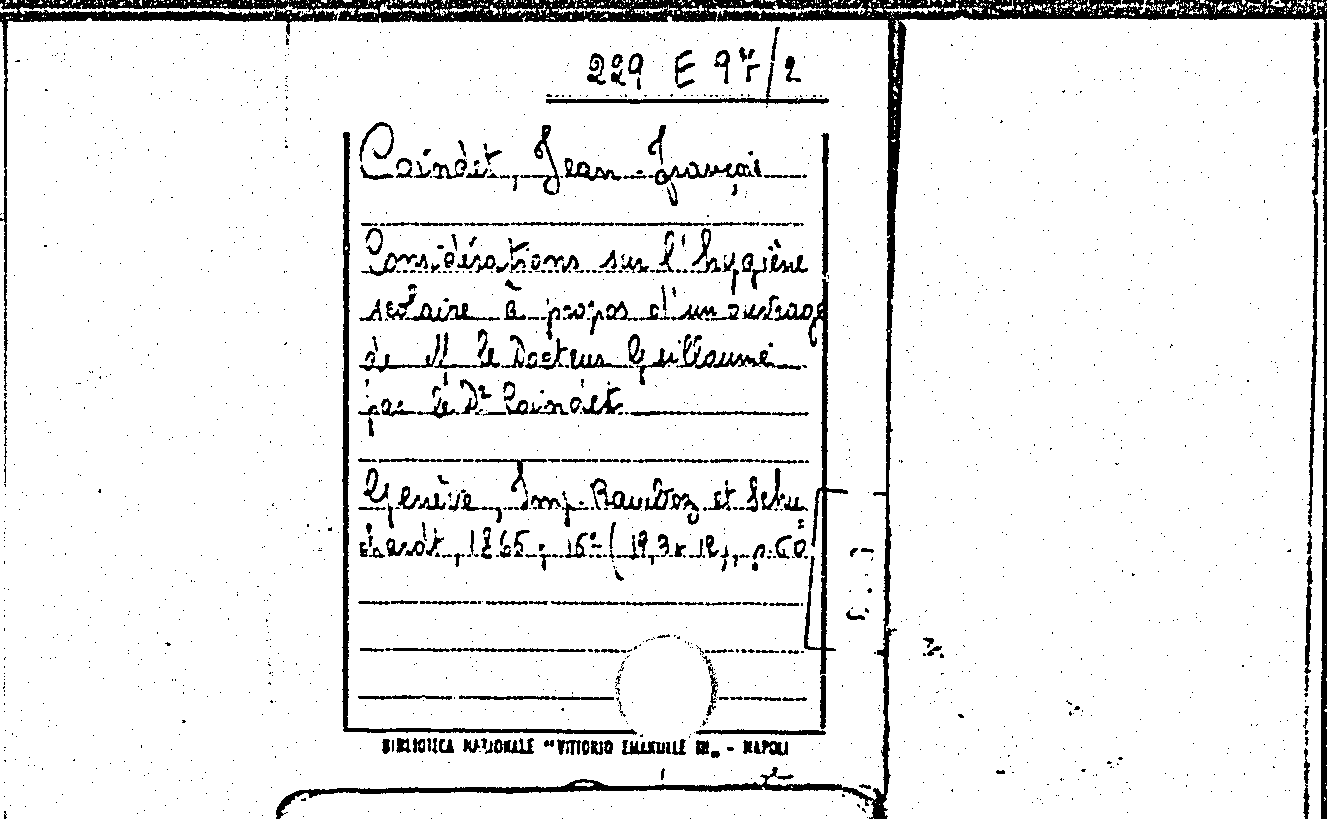 229 E 97/2
Coindet, Jean-François
Considérations sur l'hygiène
scolaire à propos d'un ouvrage
de M le Docteur Guillaume
par le Dr Coindet
Genève, Imp. Ramboz et Schu
chardt, 1865; 16º (19,3x12), p.60
BIBLIOTECA NAZIONALE "VITTORIO EMANUELE III" - NAPOLI